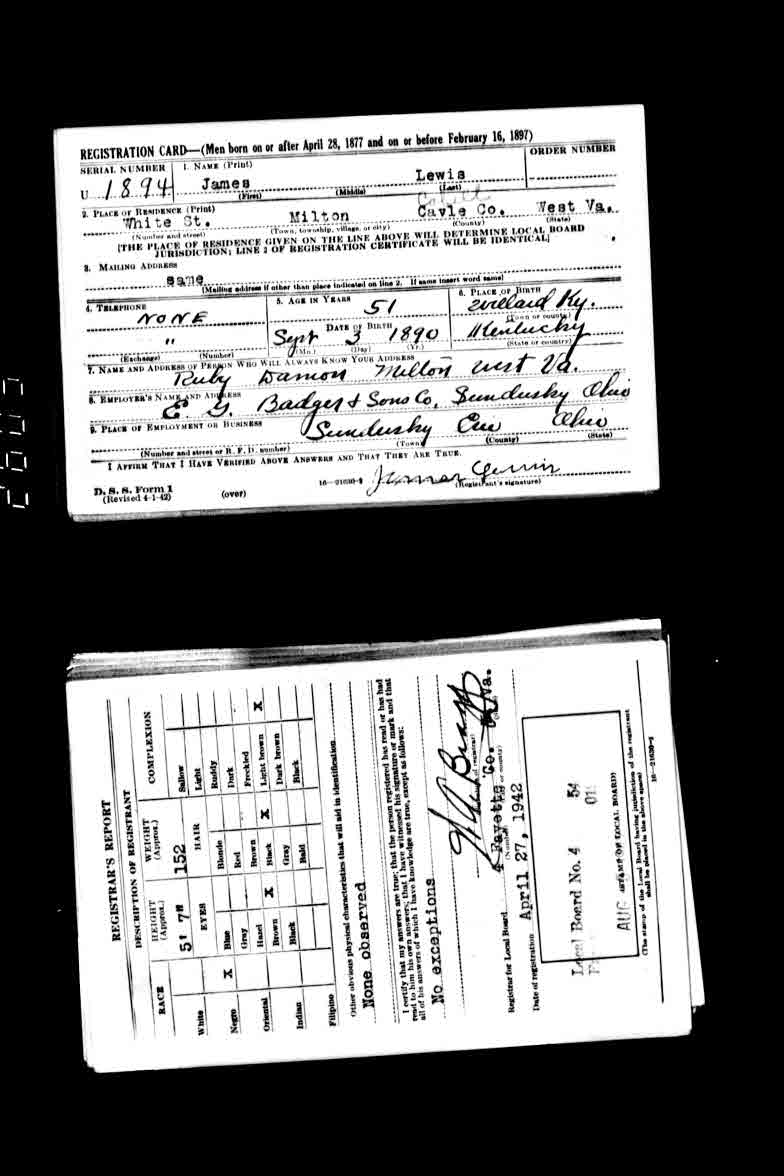 REGISTRATION CARD—(Men born on or after April 28, 1877 and on or before February 16, 1897)
SERIAL NUMBER 1. NAME (Print) ORDER NUMBER
U 1894 James Lewis
(First) (Middle) (Last)
2. PLACE OF RESIDENCE (Print)
White St. Milton Cavle Co. West Va.
(Number and street) (Town, township, village, or city) (County) (State)
[THE PLACE OF RESIDENCE GIVEN ON THE LINE ABOVE WILL DETERMINE LOCAL BOARD
JURISDICTION; LINE 2 OF REGISTRATION CERTIFICATE WILL BE IDENTICAL]
3. MAILING ADDRESS
same
[Mailing address if other than place indicated on line 2. If same insert word same]
4. TELEPHONE 5. AGE IN YEARS 6. PLACE OF BIRTH
NONE 51 Willard Ky.
(Town or county)
" DATE OF BIRTH
Sept 3 1890 Kentucky
(Exchange) (Number) (Mo.) (Day) (Yr.) (State or country)
7. NAME AND ADDRESS OF PERSON WHO WILL ALWAYS KNOW YOUR ADDRESS
Ruby Damon Milton West Va.
8. EMPLOYER'S NAME AND ADDRESS
E G. Badger & Sons Co, Sundusky Ohio
9. PLACE OF EMPLOYMENT OR BUSINESS
Sundusky Ohio
(Number and street or R. F. D. number) (Town) (County) (State)
I AFFIRM THAT I HAVE VERIFIED ABOVE ANSWERS AND THAT THEY ARE TRUE.
D. S. S. Form 1
(Revised 4-1-42) (over) 16—21630-2 James Lewis
(Registrant's signature)
REGISTRAR'S REPORT
DESCRIPTION OF REGISTRANT
RACE HEIGHT (Approx.) WEIGHT (Approx.) COMPLEXION
5' 7" 152 Sallow
White EYES HAIR Light
Negro X Blue Blonde Ruddy
Gray Red Dark
Oriental Hazel Brown Freckled
Brown X Black X Light brown X
Indian Black Gray Dark brown
Bald Black
Filipino
Other obvious physical characteristics that will aid in identification
None observed
I certify that my answers are true; that the person registered has read or has had
read to him his own answers; that I have witnessed his signature or mark and that
all of his answers of which I have knowledge are true, except as follows:
No exceptions
Registrar for Local Board 4 Fayette Co. W. Va.
Date of registration April 27, 1942
Local Board No. 4 54
AUG
(STAMP OF LOCAL BOARD)
(The stamp of the Local Board having jurisdiction of the registrant
shall be placed in the above space)
16—21630-1